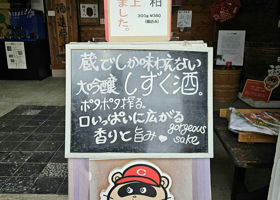 上 粕
ました。
300g ¥360
(税込み)
蔵でしか味わえない
大吟醸 しずく酒。
ポタポタ搾る。
口いっぱいに広がる
香りと旨み
gorgeous
sake
C